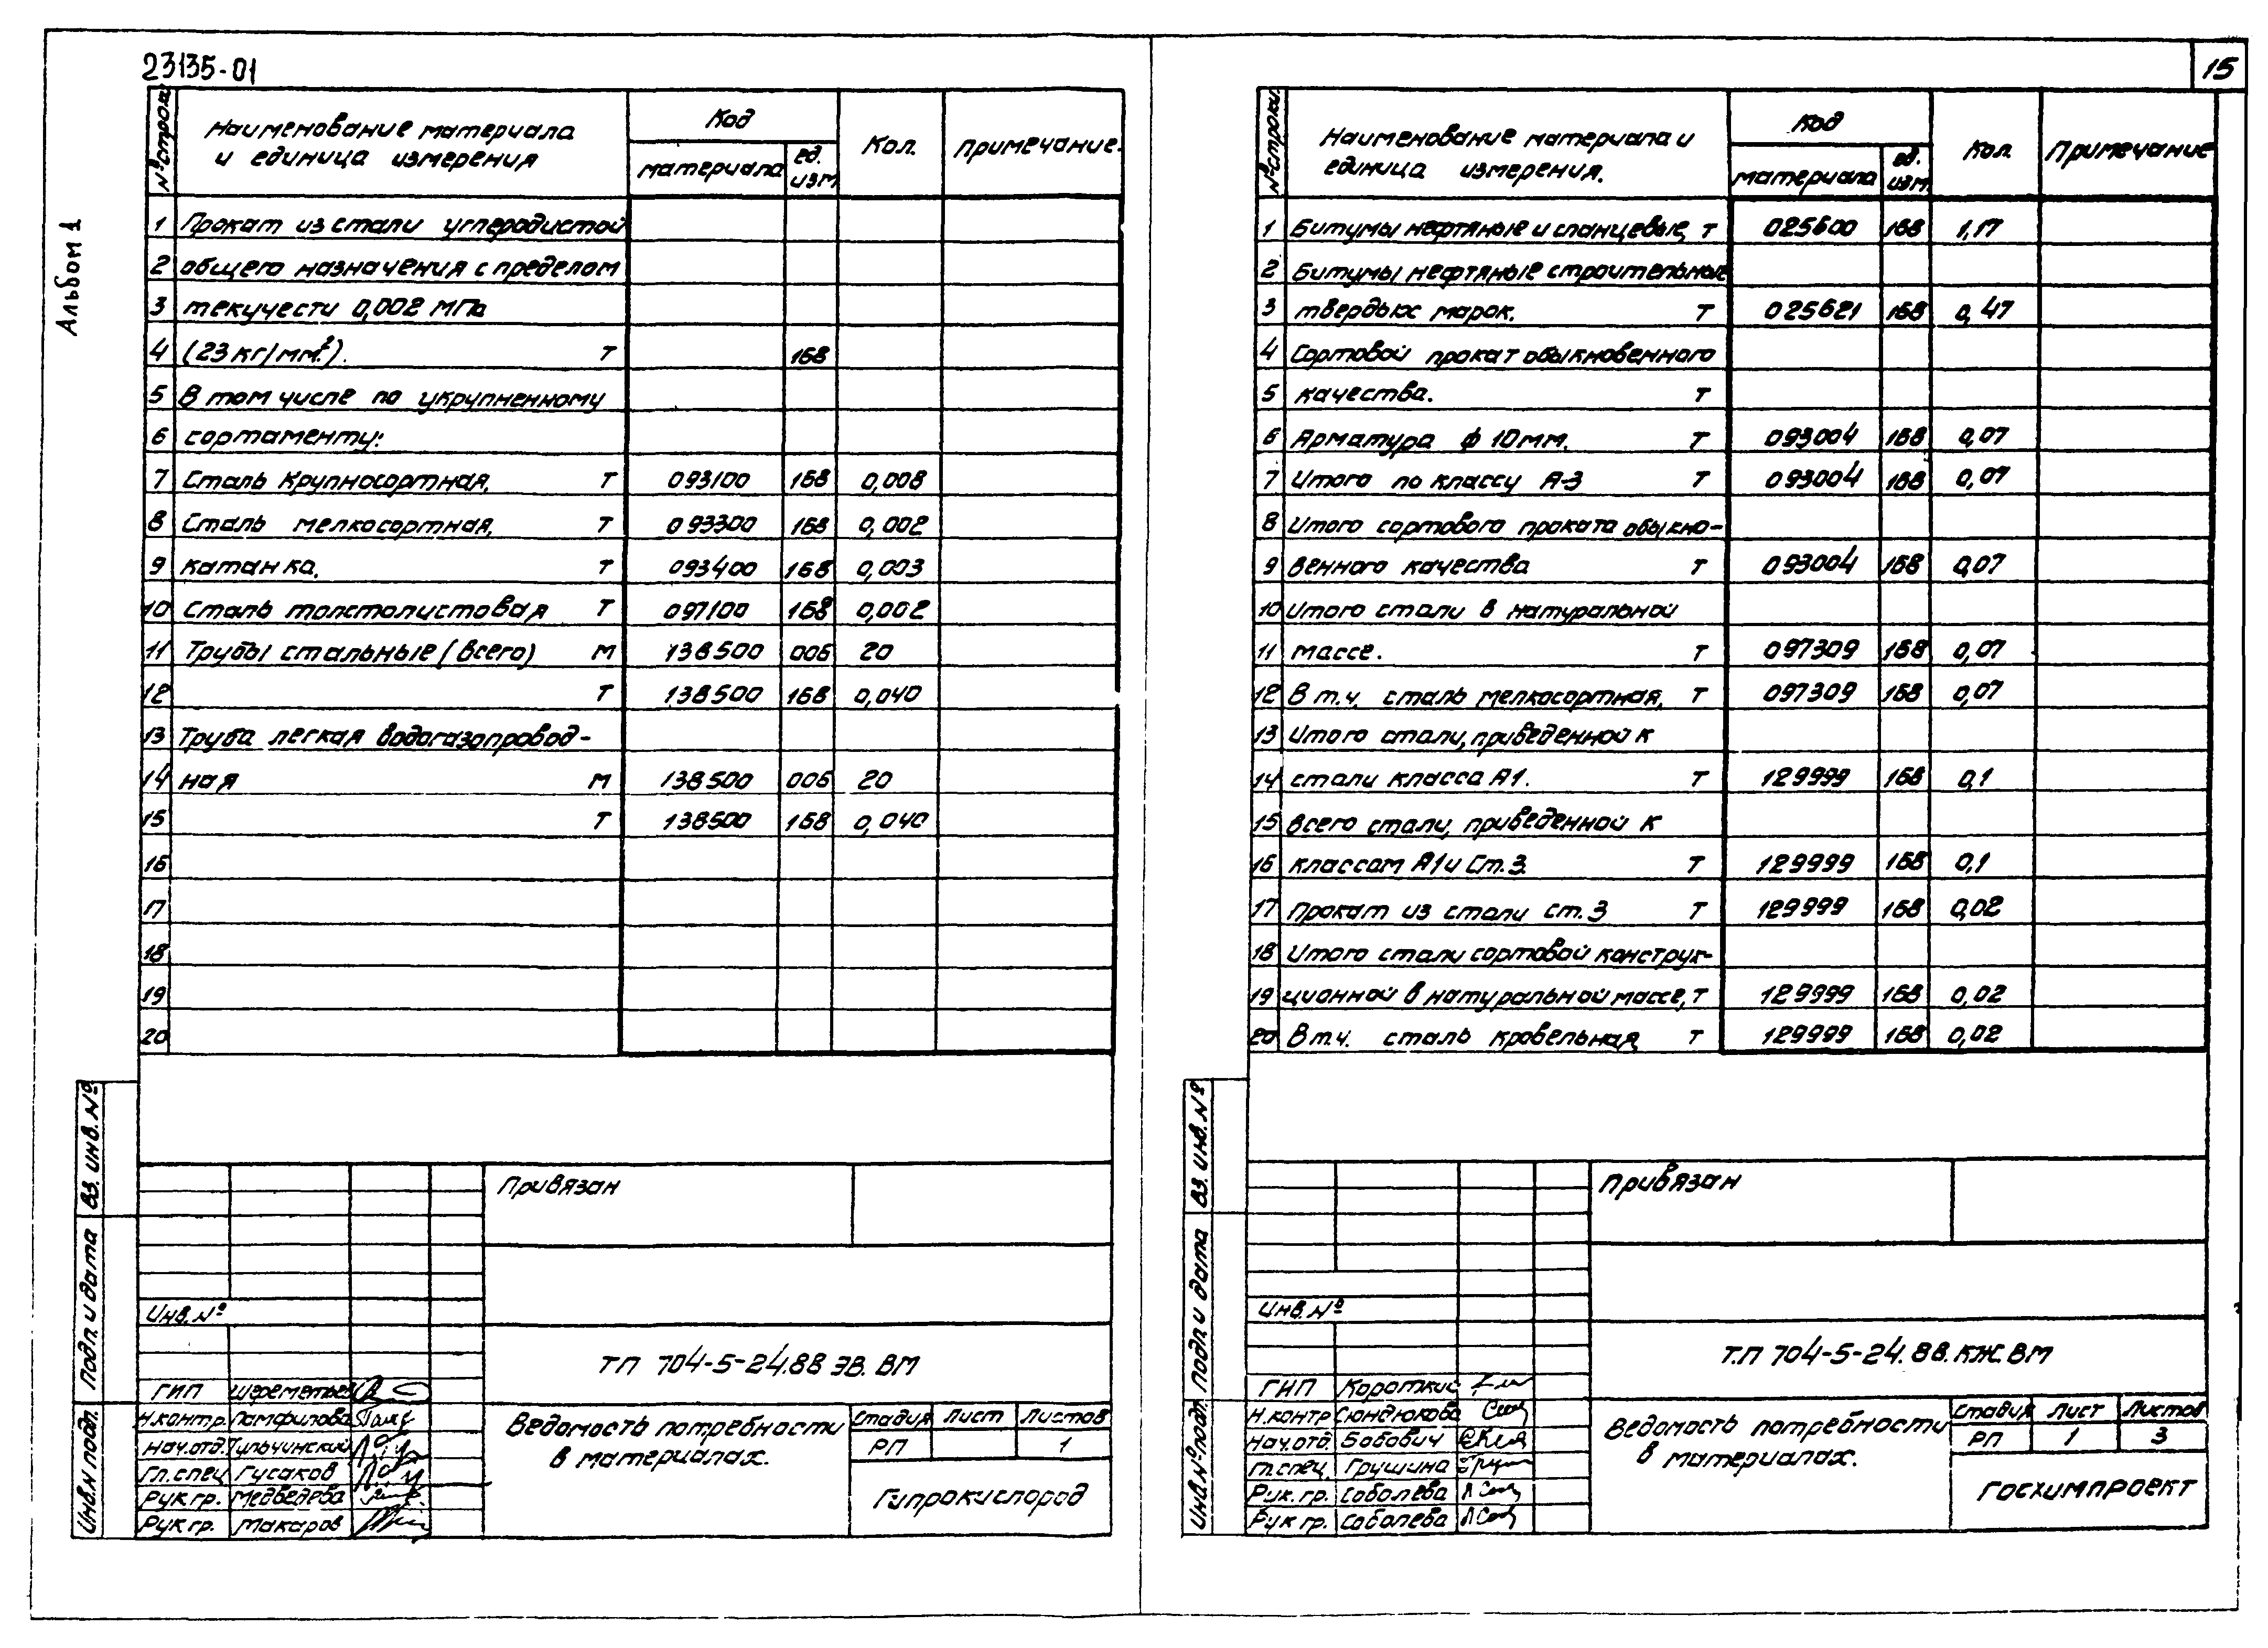 23135-01
15
Альбом 1
№ строки
Наименование материала
и единица измерения
Код
материала
ед.
изм
Кол.
Примечание.
1 Прокат из стали углеродистой
2 общего назначения с пределом
3 текучести 0,002 МПа
4 (23 кг/мм²). Т 168
5 В том числе по укрупненному
6 сортаменту:
7 Сталь крупносортная, Т 093100 168 0,008
8 Сталь мелкосортная, Т 093300 168 0,002
9 Катанка, Т 093400 168 0,003
10 Сталь толстолистовая Т 097100 168 0,002
11 Трубы стальные (всего) М 138500 006 20
12 Т 138500 168 0,040
13 Труба легкая водогазопровод-
14 ная М 138500 006 20
15 Т 138500 168 0,040
16
17
18
19
20
Привязан
Инв. №
ТП 704-5-24.88 ЭВ. ВМ
ГИП Шереметьев
Н.контр. Памфилова
Нач.отд. Тульчинский
Гл.спец Гусаков
Рук гр. Медведева
Рук гр. Макаров
Ведомость потребности
в материалах.
Стадия Лист Листов
РП 1
Гипрокислород
Инв. № подл. Подп. и дата Вз. инв. №
№ строки
Наименование материала и
единица измерения.
Код
материала
ед.
изм.
Кол.
Примечание
1 Битумы нефтяные и сланцевые, Т 025600 168 1,17
2 Битумы нефтяные строительные
3 твердых марок. Т 025621 168 0,47
4 Сортовой прокат обыкновенного
5 качества. Т
6 Арматура ф 10 мм. Т 093004 168 0,07
7 Итого по классу А-3 Т 093004 168 0,07
8 Итого сортового проката обыкно-
9 венного качества Т 093004 168 0,07
10 Итого стали в натуральной
11 массе. Т 097309 168 0,07
12 В т.ч. сталь мелкосортная, Т 097309 168 0,07
13 Итого стали, приведенной к
14 стали класса А1. Т 129999 168 0,1
15 Всего стали, приведенной к
16 классам А1 и Ст. 3. Т 129999 168 0,1
17 Прокат из стали ст. 3 Т 129999 168 0,02
18 Итого стали сортовой конструк-
19 ционной в натуральной массе, Т 129999 168 0,02
20 В т.ч. сталь кровельная Т 129999 168 0,02
Привязан
Инв. №
Т.П 704-5-24.88. КЖ. ВМ
ГИП Короткий
Н.контр Сюндюкова
Нач.отд. Бобович
гл.спец. Грушина
Рук. гр. Соболева
Рук гр. Соболева
Ведомость потребности
в материалах.
Стадия Лист Листов
РП 1 3
Госхимпроект
Инв. № подл. Подп. и дата Вз. инв. №